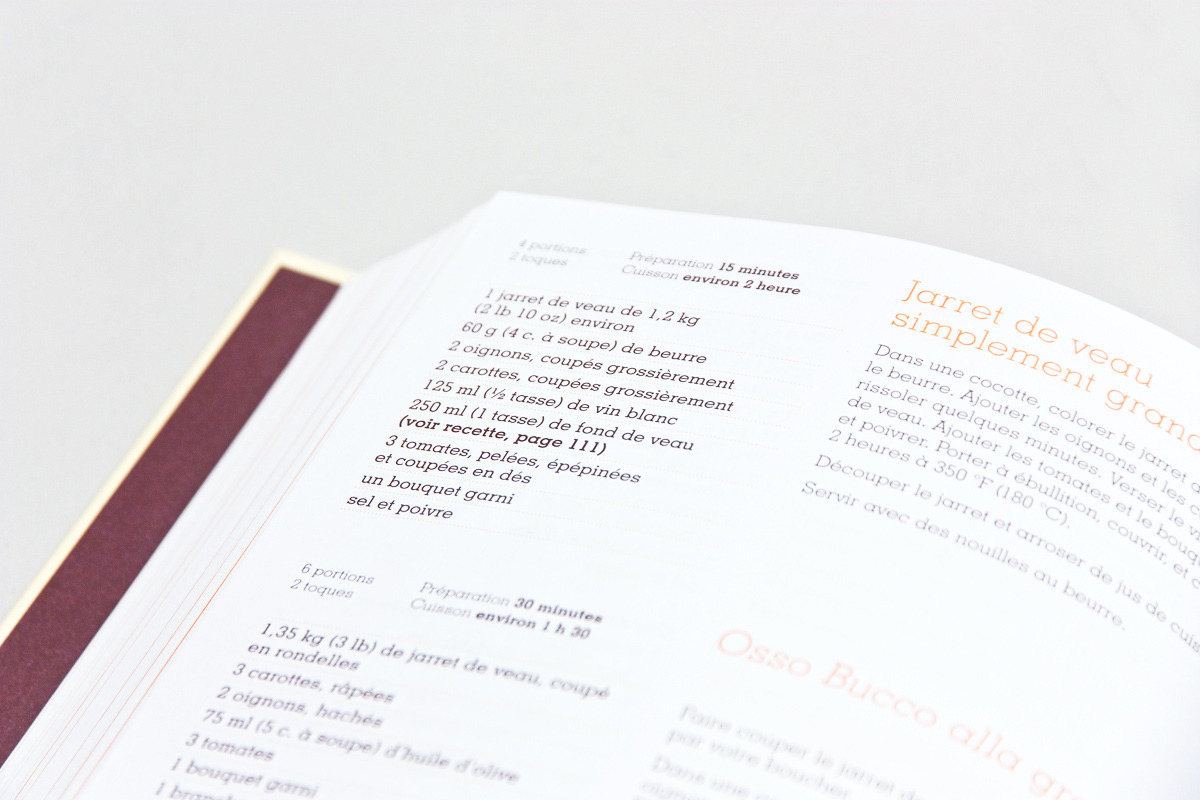 4 portions
2 toques
Préparation 15 minutes
Cuisson environ 2 heure
1 jarret de veau de 1,2 kg
(2 lb 10 oz) environ
60 g (4 c. à soupe) de beurre
2 oignons, coupés grossièrement
2 carottes, coupées grossièrement
125 ml (½ tasse) de vin blanc
250 ml (1 tasse) de fond de veau
(voir recette, page 111)
3 tomates, pelées, épépinées
et coupées en dés
un bouquet garni
sel et poivre
Jarret de veau
simplement
Dans une cocotte, colorer le jarret
le beurre. Ajouter les oignons et les
rissoler quelques minutes. Verser le
de veau. Ajouter les tomates et le
et poivrer. Porter à ébullition, couvrir, et
2 heures à 350 °F (180 °C).
Découper le jarret et arroser de jus de
Servir avec des nouilles au beurre.
6 portions
2 toques
Préparation 30 minutes
Cuisson environ 1 h 30
1,35 kg (3 lb) de jarret de veau, coupé
en rondelles
3 carottes, râpées
2 oignons, hachés
75 ml (5 c. à soupe) d'huile d'olive
3 tomates
1 bouquet garni
1
Osso Bucco alla
Faire couper le jarret
par votre boucher
Dans une